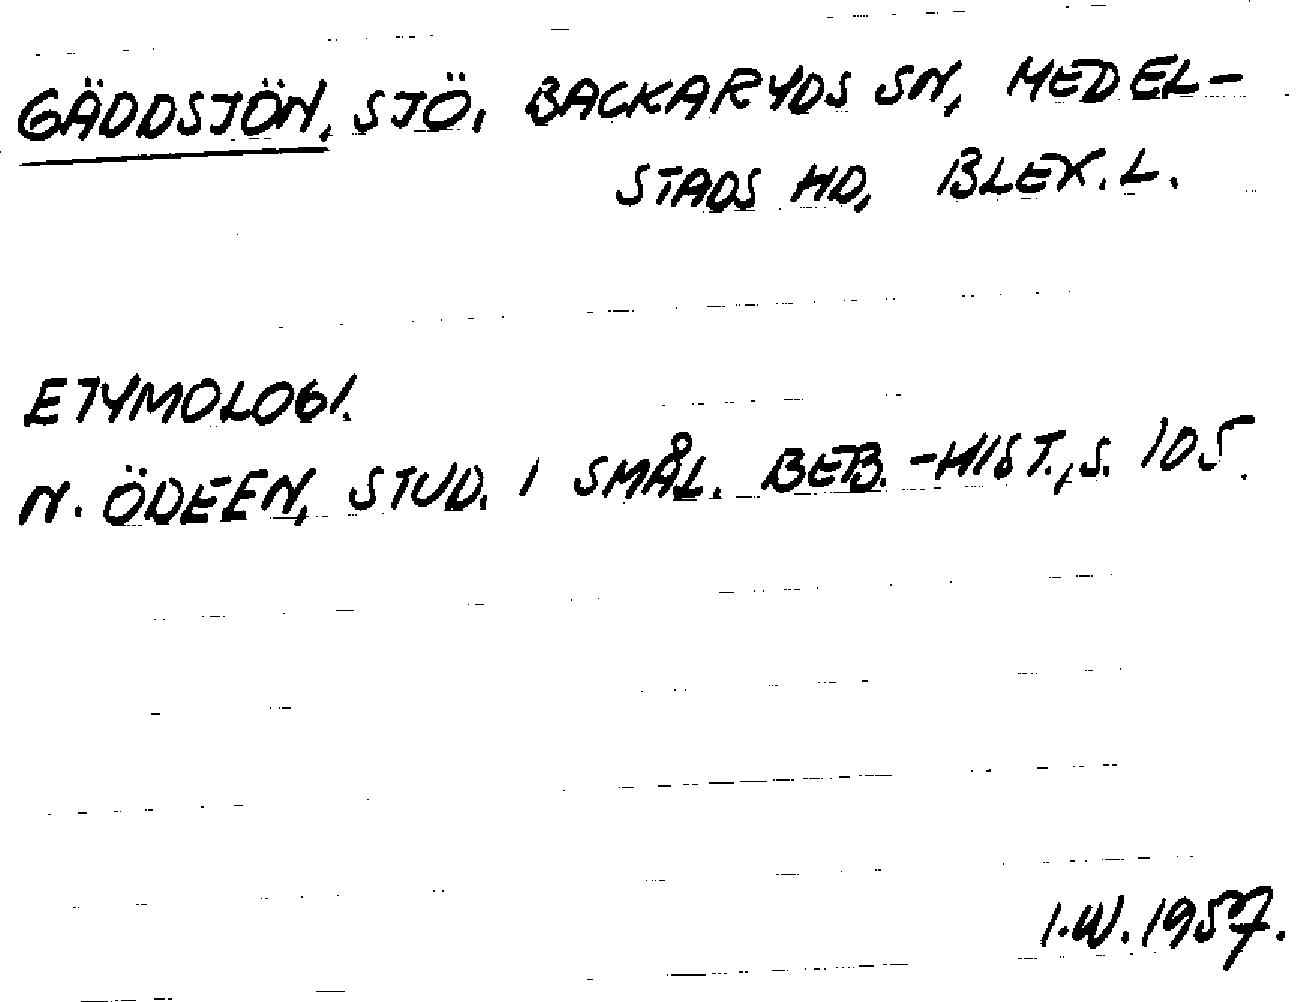 GÄDDSJÖN, SJÖ, BACKARYDS SN, MEDEL-
STADS HD, BLEK. L.
ETYMOLOGI.
N. ÖDEEN, STUD. I SMÅL. BEB.-HIST., S. 105.
I.W. 1957.